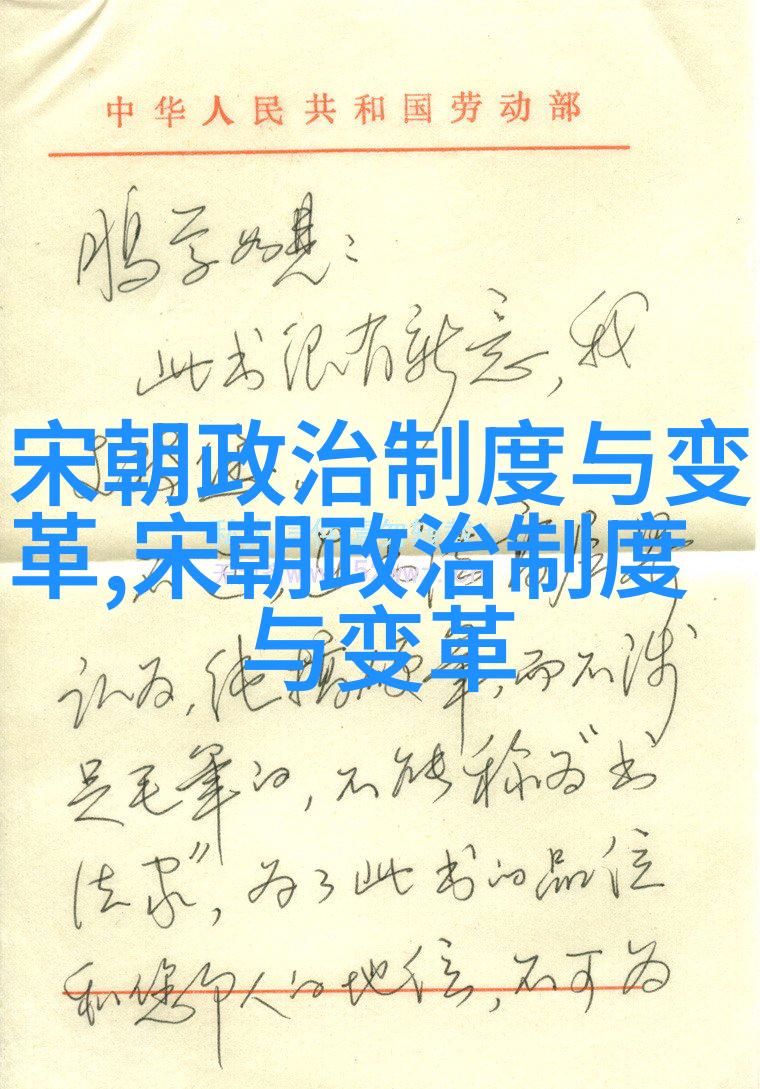 中华人民共和国劳动部
鹏学如晤：
此书很有新意，我
宋朝政治制度与变
革,宋朝政治制度
与变革
认为，纯搞硬笔，而不涉
足毛笔的，不能称为“书
法家”，为了此书的品位
和您个人的地位，不可为